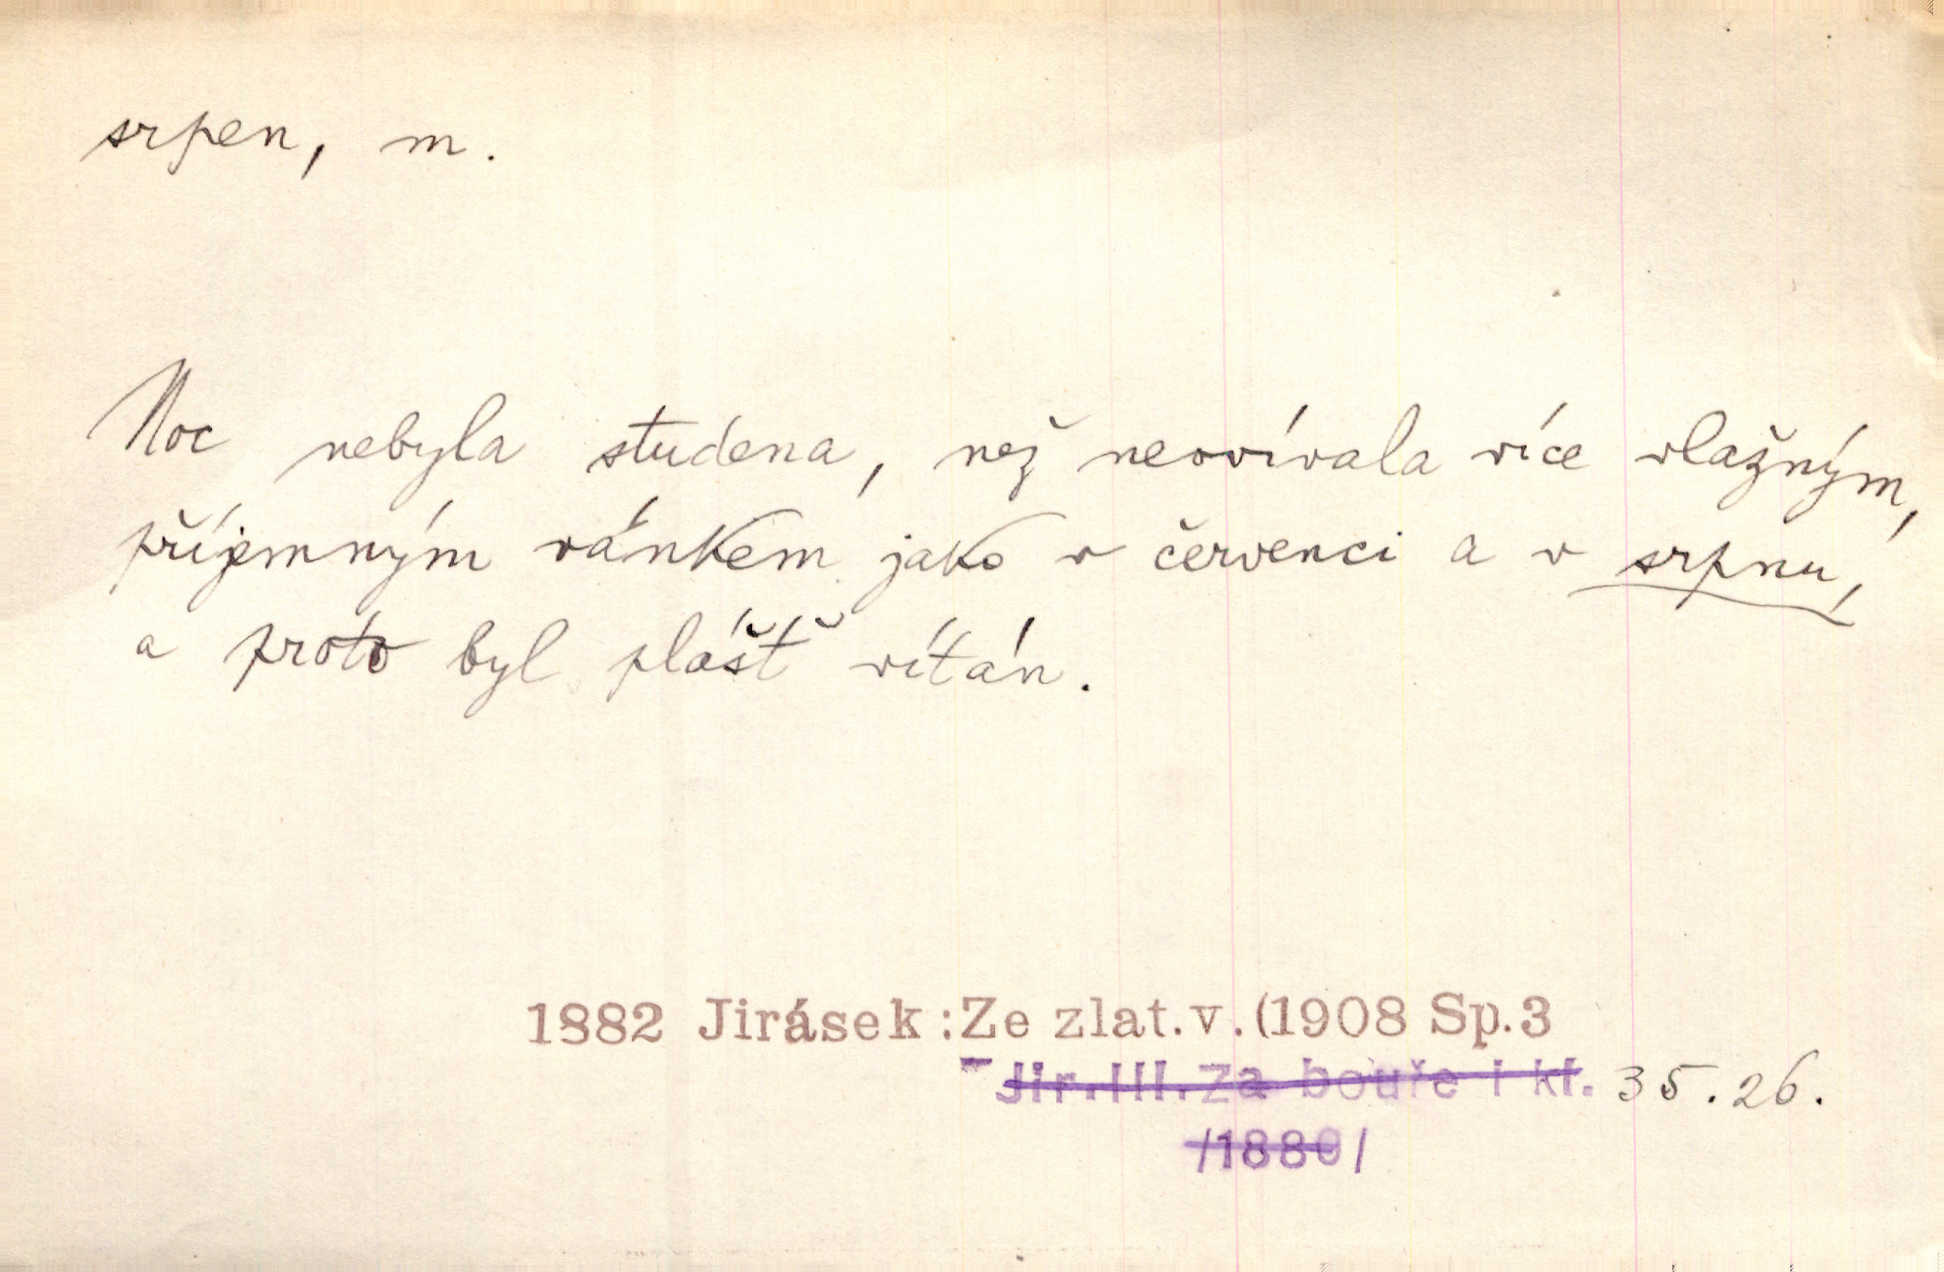 srpen, m.
Noc nebyla studena, než neovívala více vlažným,
příjemným vánkem jako v červenci a v srpnu,
a proto byl plášť vítán.
1882 Jirásek:Ze zlat.v.(1908 Sp.3
Jir.III.Za bouře i kl. 35.26.
/1880/